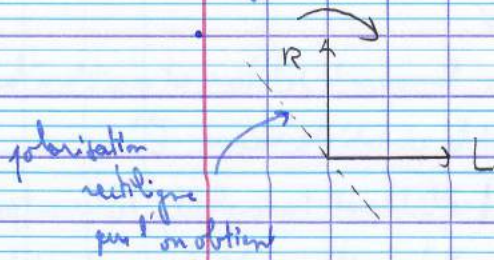 R
L
polarisation
rectiligne
que l'on obtient